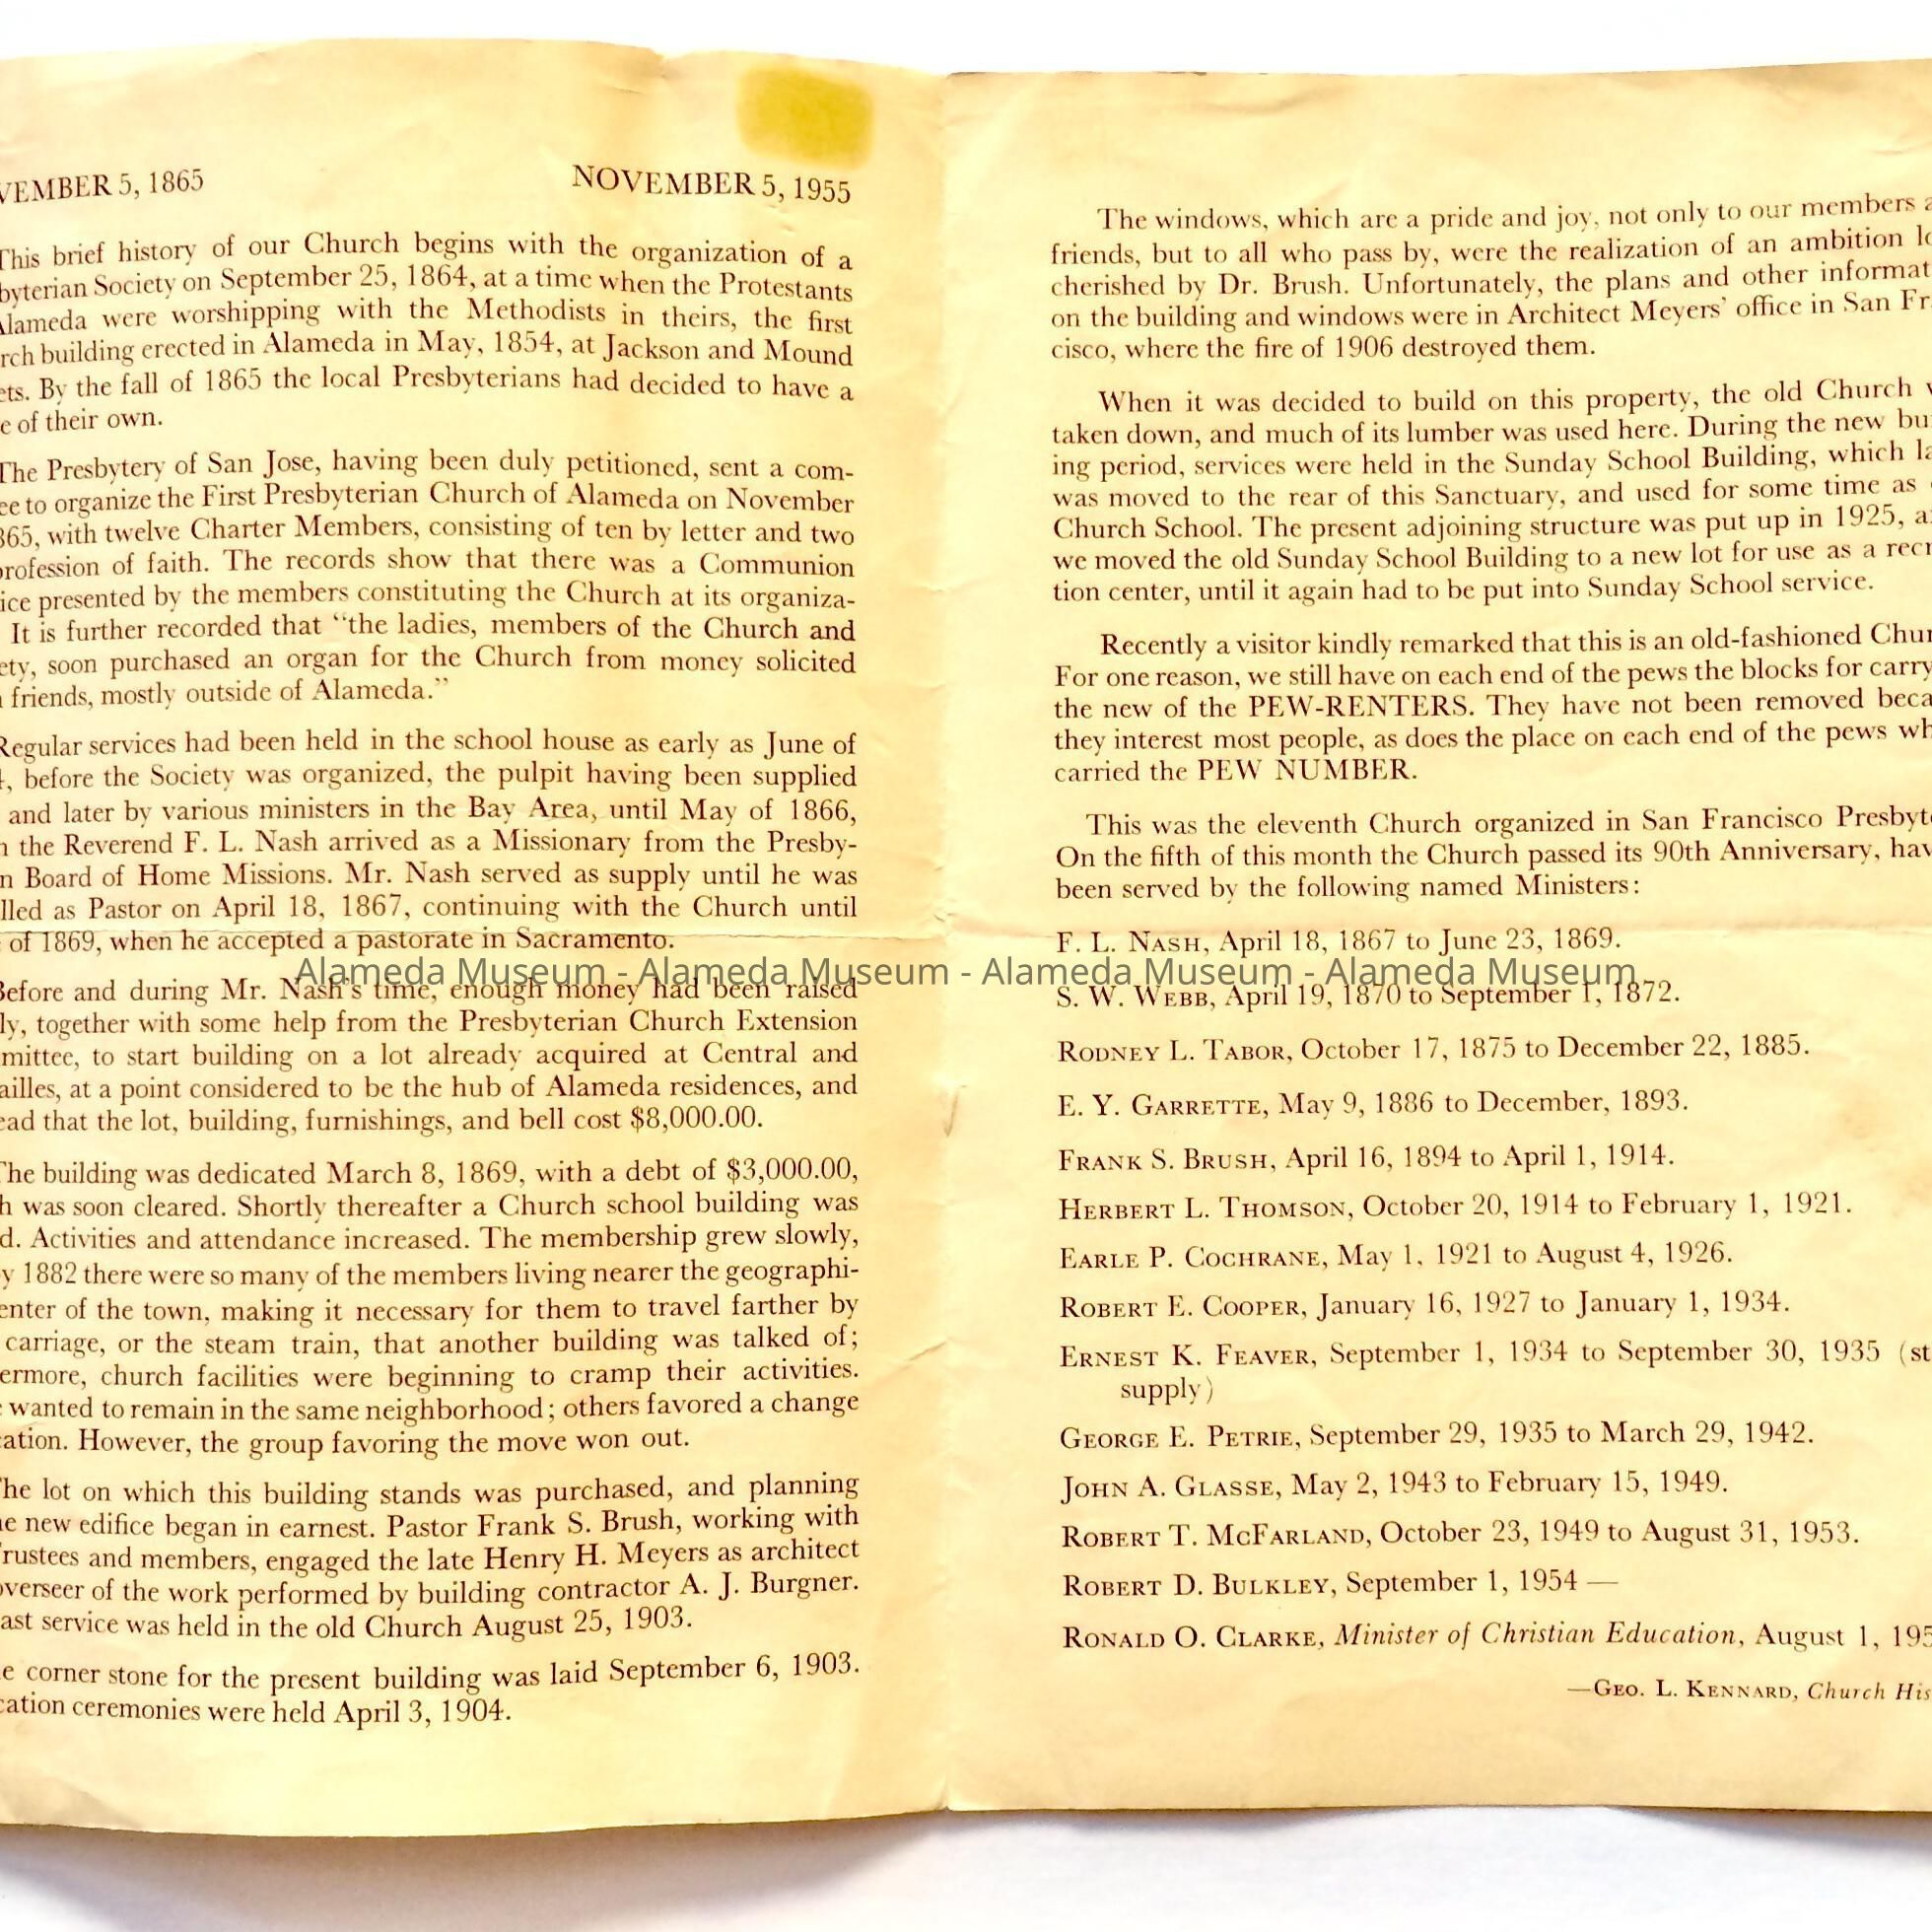 VEMBER 5, 1865 NOVEMBER 5, 1955
This brief history of our Church begins with the organization of a
byterian Society on September 25, 1864, at a time when the Protestants
Alameda were worshipping with the Methodists in theirs, the first
rch building erected in Alameda in May, 1854, at Jackson and Mound
ets. By the fall of 1865 the local Presbyterians had decided to have a
e of their own.
The Presbytery of San Jose, having been duly petitioned, sent a com-
ee to organize the First Presbyterian Church of Alameda on November
865, with twelve Charter Members, consisting of ten by letter and two
profession of faith. The records show that there was a Communion
ice presented by the members constituting the Church at its organiza-
It is further recorded that "the ladies, members of the Church and
ety, soon purchased an organ for the Church from money solicited
friends, mostly outside of Alameda."
Regular services had been held in the school house as early as June of
, before the Society was organized, the pulpit having been supplied
and later by various ministers in the Bay Area, until May of 1866,
n the Reverend F. L. Nash arrived as a Missionary from the Presby-
n Board of Home Missions. Mr. Nash served as supply until he was
lled as Pastor on April 18, 1867, continuing with the Church until
of 1869, when he accepted a pastorate in Sacramento.
Before and during Mr. Nash's time, enough money had been raised
ly, together with some help from the Presbyterian Church Extension
mittee, to start building on a lot already acquired at Central and
ailles, at a point considered to be the hub of Alameda residences, and
ead that the lot, building, furnishings, and bell cost $8,000.00.
The building was dedicated March 8, 1869, with a debt of $3,000.00,
h was soon cleared. Shortly thereafter a Church school building was
d. Activities and attendance increased. The membership grew slowly,
y 1882 there were so many of the members living nearer the geographi-
enter of the town, making it necessary for them to travel farther by
carriage, or the steam train, that another building was talked of;
ermore, church facilities were beginning to cramp their activities.
e wanted to remain in the same neighborhood; others favored a change
cation. However, the group favoring the move won out.
The lot on which this building stands was purchased, and planning
he new edifice began in earnest. Pastor Frank S. Brush, working with
Trustees and members, engaged the late Henry H. Meyers as architect
overseer of the work performed by building contractor A. J. Burgner.
ast service was held in the old Church August 25, 1903.
e corner stone for the present building was laid September 6, 1903.
cation ceremonies were held April 3, 1904.
The windows, which are a pride and joy, not only to our members a
friends, but to all who pass by, were the realization of an ambition lo
cherished by Dr. Brush. Unfortunately, the plans and other informat
on the building and windows were in Architect Meyers' office in San Fr
cisco, where the fire of 1906 destroyed them.
When it was decided to build on this property, the old Church w
taken down, and much of its lumber was used here. During the new bu
ing period, services were held in the Sunday School Building, which la
was moved to the rear of this Sanctuary, and used for some time as
Church School. The present adjoining structure was put up in 1925, a
we moved the old Sunday School Building to a new lot for use as a recr
tion center, until it again had to be put into Sunday School service.
Recently a visitor kindly remarked that this is an old-fashioned Chur
For one reason, we still have on each end of the pews the blocks for carry
the new of the PEW-RENTERS. They have not been removed beca
they interest most people, as does the place on each end of the pews wh
carried the PEW NUMBER.
This was the eleventh Church organized in San Francisco Presbyt
On the fifth of this month the Church passed its 90th Anniversary, hav
been served by the following named Ministers:
F. L. NASH, April 18, 1867 to June 23, 1869.
Alameda Museum - Alameda Museum - Alameda Museum - Alameda Museum
S. W. WEBB, April 19, 1870 to September 1, 1872.
RODNEY L. TABOR, October 17, 1875 to December 22, 1885.
E. Y. GARRETTE, May 9, 1886 to December, 1893.
FRANK S. BRUSH, April 16, 1894 to April 1, 1914.
HERBERT L. THOMSON, October 20, 1914 to February 1, 1921.
EARLE P. COCHRANE, May 1, 1921 to August 4, 1926.
ROBERT E. COOPER, January 16, 1927 to January 1, 1934.
ERNEST K. FEAVER, September 1, 1934 to September 30, 1935 (st
supply)
GEORGE E. PETRIE, September 29, 1935 to March 29, 1942.
JOHN A. GLASSE, May 2, 1943 to February 15, 1949.
ROBERT T. MCFARLAND, October 23, 1949 to August 31, 1953.
ROBERT D. BULKLEY, September 1, 1954 —
RONALD O. CLARKE, Minister of Christian Education, August 1, 195
—GEO. L. KENNARD, Church His